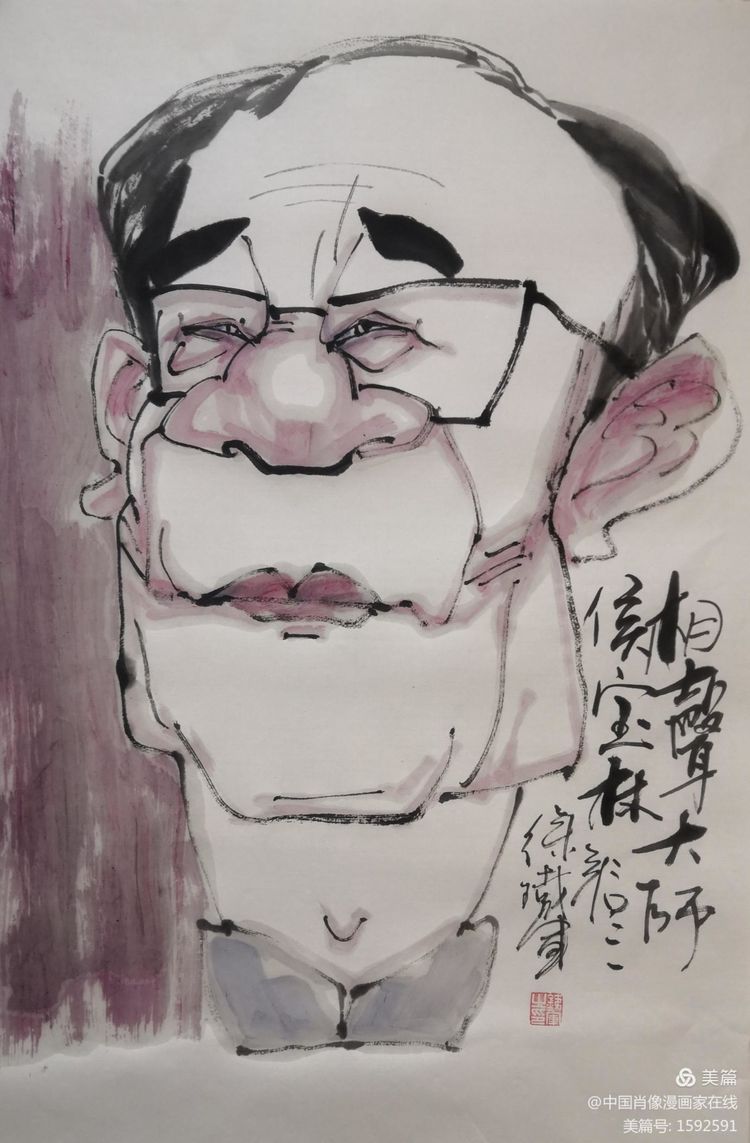 相聲大师
侯宝林
徐鐵军
美篇
@中国肖像漫画家在线
美篇号: 1592591